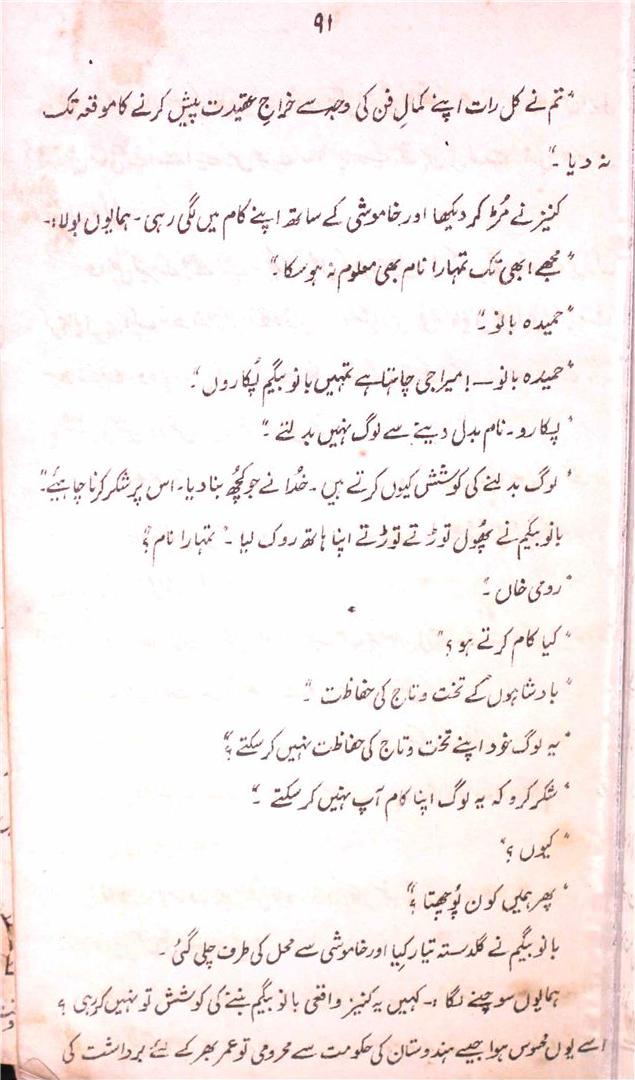 ۹۱
"تم نے کل رات اپنے کمالِ فن کی وجہ سے خراجِ عقیدت پیش کرنے کا موقعہ تک
نہ دیا۔"
کنیز نے مُڑ کر دیکھا اور خاموشی کے ساتھ اپنے کام میں لگی رہی۔ ہمایوں بولا:۔
"مجھے ابھی تک تمہارا نام بھی معلوم نہ ہو سکا۔"
"حمیدہ بانو۔"
"حمیدہ بانو—! میرا جی چاہتا ہے تمہیں بانو بیگم پُکاروں۔"
"پکارو۔ نام بدل دینے سے لوگ نہیں بدلتے۔"
"لوگ بدلنے کی کوشش کیوں کرتے ہیں۔ خُدا نے جو کچُھ بنا دیا۔ اس پر شکر کرنا چاہیئے۔"
بانو بیگم نے پھُول توڑتے توڑتے اپنا ہاتھ روک لیا۔ "تمہارا نام؟"
"رومی خاں۔"
"کیا کام کرتے ہو؟"
"بادشاہوں کے تخت و تاج کی حفاظت۔"
"یہ لوگ خود اپنے تخت و تاج کی حفاظت نہیں کر سکتے؟"
"شکر کرو کہ یہ لوگ اپنا کام آپ نہیں کر سکتے۔"
"کیوں؟"
"پھر ہمیں کون پُوچھتا؟"
بانو بیگم نے گلدستہ تیار کِیا اور خاموشی سے محل کی طرف چلی گئی۔
ہمایوں سوچنے لگا:۔ کہیں یہ کنیز واقعی بانو بیگم بننے کی کوشش تو نہیں کر رہی؟
اسے یوں محسوس ہوا جیسے ہندوستان کی حکومت سے محرومی تو عمر بھر کے لئے برداشت کی